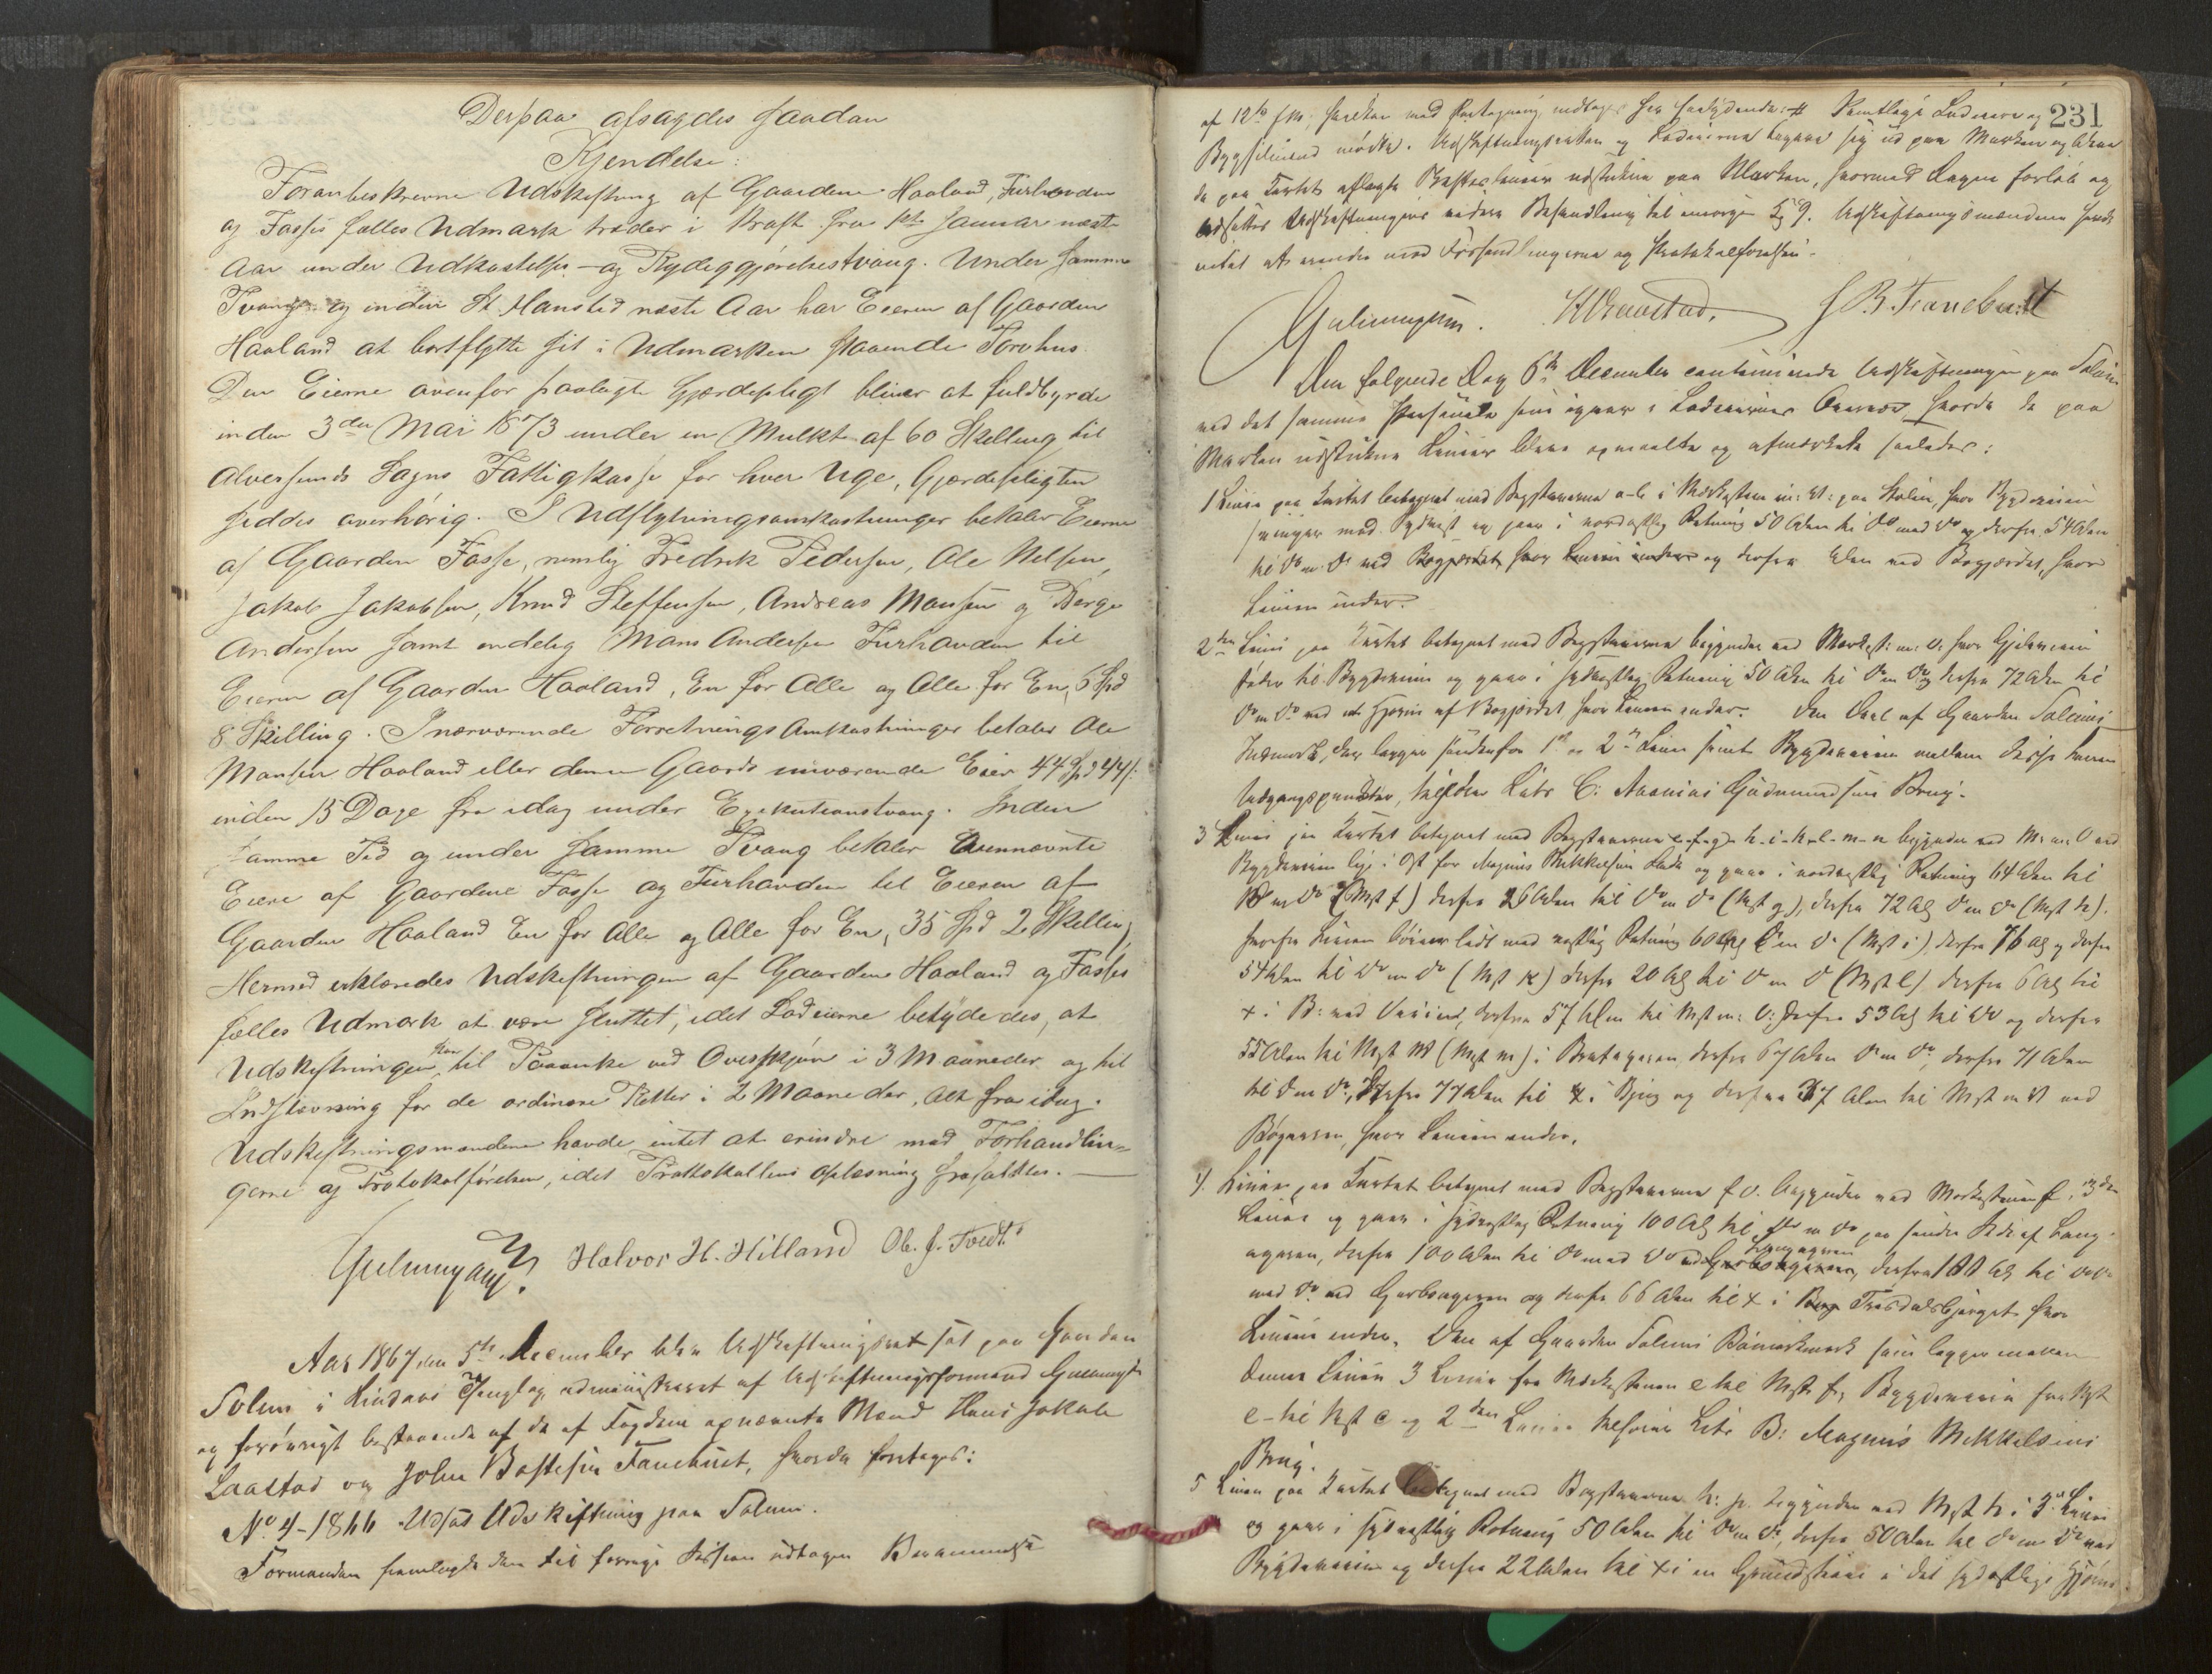 Derpaa afsagdes saadan
Kjendelse:
Foranbeskrevne Udskiftning af Gaardene Haaland, Furhovden
og Fosses fælles Udmark træder i Kraft fra 1ste Januar næste
Aar under Udkastelses- og Rydeggjørelsestvang. Under samme
Tvang og inden St. Hanstid næste Aar har Eieren af Gaarden
Haaland at bortflytte sit i Udmarken staaende Torvhus.
Den Eierne ovenfor paalagte Gjærdepligt bliver at fuldbyrde
inden 3die Mai 1873 under en Mulkt af 60 Skilling til
Alversunds Sogns Fattigkasse for hver Uge, Gjærdepligten
siddes overhørig. I Udflytningsomkostninger betaler Eierne
af Gaarden Fosse, nemlig Fredrik Pedersen, Ole Nelsen,
Jakob Jakobsen, Knud Steffensen, Andreas Monsen og Børge
Andersen samt endelig Mons Andersen Furhovden til
Eieren af Gaarden Haaland, En for Alle og Alle for En, 6 Spd
8 Skilling. I nærværende Forretnings Omkostninger betaler Ole
Monsen Haaland eller denne Gaards nuværende Eier 44 Spd 44 s:
inden 15 Dage fra idag under Exekutionstvang. Inden
samme Tid og under samme Tvang betaler Ovennævnte
Eiere af Gaardene Fosse og Furhovden til Eieren af
Gaarden Haaland En for Alle og Alle for En, 35 Spd 2 Skilling
Hermed erklæredes Udskiftningen af Gaardene Haaland og Fosses
fælles Udmark at være sluttet, idet Lodeierne betydedes, at
Udskiftningen kan til Paaanke ved Overskjøn i 3 Maaneder og til
Indstævning for de ordinære Retter i 2 Maaneder, Alt fra idag.
Udskiftningsmændene havde intet at erindre mod Forhandlin-
gerne og Protokolførelsen, idet Protokollens Oplæsning frafaldtes.
Halvor H. Hilland Ol. J. Tvedt
Aar 1867 den 5te December blev Udskiftningsret sat paa Gaarden
Solem i Lindaas Thinglag, administreret af Udskiftningsformand
og forøvrigt bestaaende af de af Fogden opnævnte Mænd Hans Jakob
og John Bastesen Fanebust, hvorda foretoges:
No. 4-1866 Udsat Udskiftning paa Solem.
Formanden fremlagde den til forrige Session udtagne Berammelse
231
af 12te f.M., hvilken med Paategning indtages her saalydende: # Samtlige Lodeiere og
Bygselmænd mødte. Udskiftningsretten og Lodeierne begave sig ud paa Marken og bleve
de paa Kartet aflagte Linier udstukne paa Marken, hvormed Dagen forløb og
udsættes Udskiftningens videre Behandling til imorgen Kl 9. Udskiftningsmændene havde
intet at erindre mod Forhandlingerne og Protokolførelsen.
J B. Fanebust
Den følgende Dag 6te December continuerede Udskiftningen paa Solem
med det samme Personale som igaar i Lodeiernes Overvær, hvorda de paa
Marken udstukne Linier bleve opmaalte og afmærkede saaledes:
1 Linie paa Kartet betegnet med Bogstaverne a-b
og gaar i nordostlig Retning 50 Alen til Do med Do og derfra 54 Alen
til Do m. Do ved Bøgjærdet hvor Linien ender og derfra Alen ved Bøgjærdet, hvor
Linien ender.
2den Linie paa Kartet betegnet med Bogstaverne begynder ved
støder til Bygdeveien og gaar i sydostlig Retning 50 Alen til Do m Do og derfra 72 Alen til
Do m Do ved et Hjørne af Bøgjærdet hvor Linien ender. Den Deel af Gaarden Solems
Indmark, der ligger søndenfor 1ste og 2den Linie samt Bygdeveien mellem disse Liniers
Udgangspunkter, tilfalder Litr C. Gudmundsens Brug.
3 Linie paa Kartet betegnet med Bogstaverne e-f-g-h-i-k-l-m-n begynder ved
Bygdeveien lige i Øst for Magnus Mikkelsens og gaar i nordostlig Retning 64 Alen til
Do m Do (Mst f) derfra 26 Alen til Do m Do (Mst g), derfra 72 Al Do m Do (Mst h).
hvorfra Linien bøier lidt mod vestlig Retning 60 Al Do m Do (Mst i), derfra 76 Al og derfra
54 Alen til Do m Do (Mst k) derfra 20 Al til Do m Do (Mst l) derfra 6 Al til
x i B: ved Veien, derfra 57 Alen til Mst m: V: derfra 53 Al til Do og derfra
55 Alen til Mst (Mst m) i derfra 67 Alen Do m Do, derfra 71 Alen
til Do m Do, derfra 77 Alen til x i Bjerg og derfra 37 Alen til Mst m V ved
hvor Linien ender.
4. Linie paa Kartet betegnet med Bogstaverne f o. begynder ved Merkestenen f, i 3die
Linie og gaar i sydostlig Retning 100 Al til Do m Do paa søndre Side af Lang-
ageren, derfra 100 Alen til Do med Do ved Langageren, derfra 100 Al til
med Do ved og derfra 66 Alen til x i hvor
Linien ender. Den af Gaarden Solems som ligger mellem
denne Linie 3 Linie fra Merkestenen e til Mst f, Bygdeveien fra Mst
e til Mst c og 2den Linie tilhører Litr B: Magnus Mikkelsens
Brug.
5 Linie paa Kartet betegnet med Bogstaverne h: p. begynder ved Mst h i 3die Linie
og gaar i sydostlig Retning 50 Alen til Do m Do, derfra 50 Alen til Do m Do ved
Bygdeveien og derfra 22 Alen til x i en Grundsteen i det sydostlige Hjørne